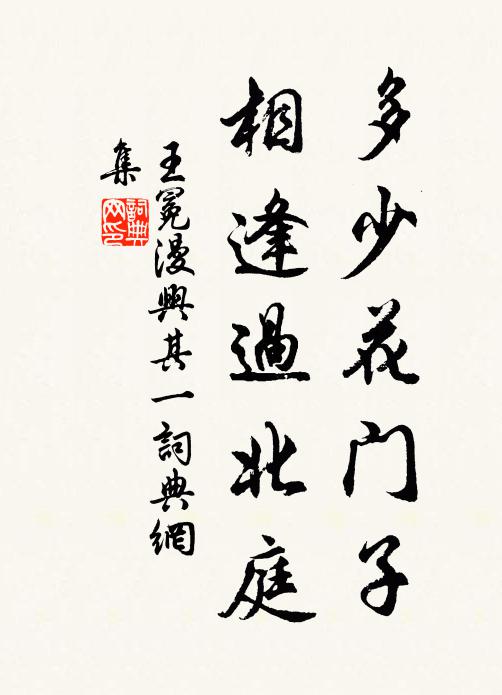 多少花门子
相逢過北庭
王冕漫興其一詞典網
集
詞典網印